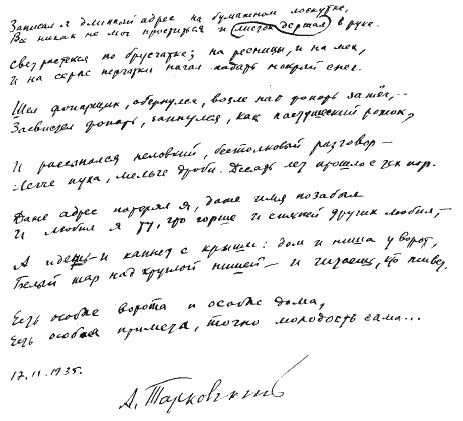 Записал я длинный адрес на бумажном лоскутке,
Всё никак не мог проститься и листок держал в руке.
Свет растекся по брусчатке; на ресницы, и на мех,
И на серые перчатки начал падать мокрый снег.
Шел фонарщик, обернулся, возле нас фонарь зажёг, —
Засвистел фонарь, запнулся, как пастушеский рожок,
И рассыпался неловкий, бестолковый разговор —
Легче пуха, мельче дроби. Десять лет прошло с тех пор.
Даже адрес потерял я, даже имя позабыл
И любил я ту, что горше и сильней других любил, —
А идешь — и каплет с крыши: дом и ниша у ворот,
Белый шар над круглой нишей — и читаешь, кто живет.
Есть особые ворота и особые дома,
Есть особая примета, точно молодость сама...
17.11.1935.
А. Тарковский